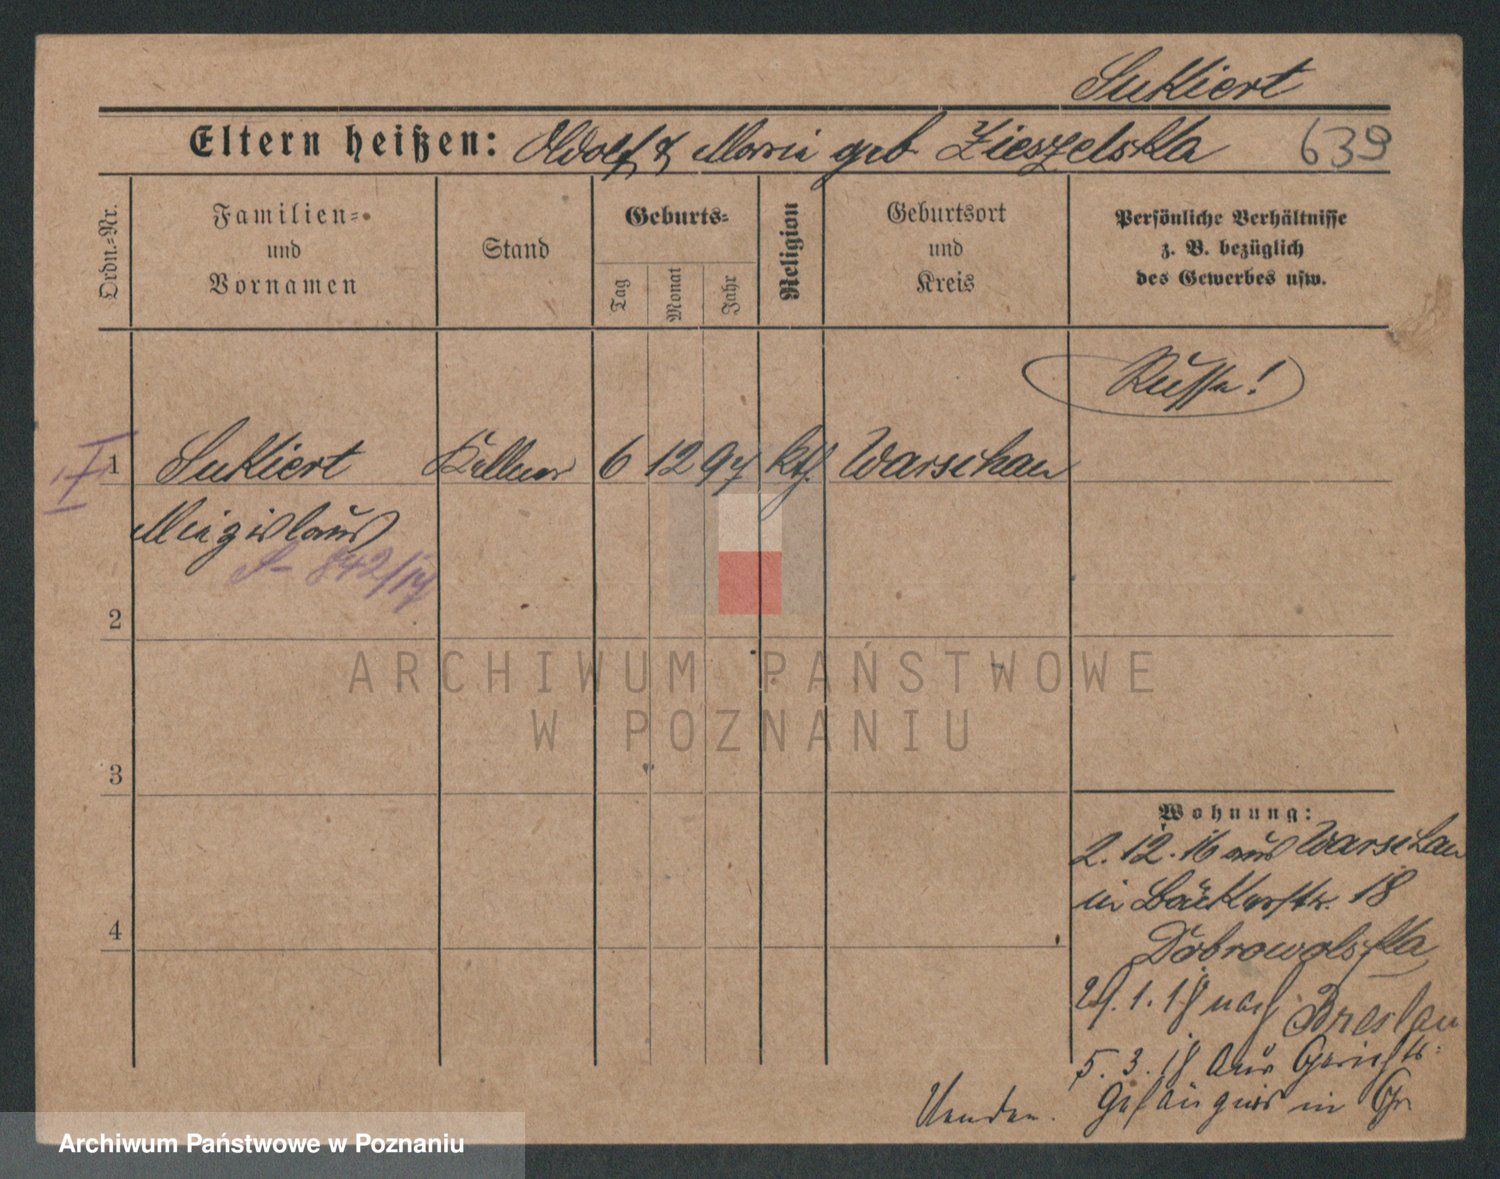 Sukiert
Eltern heißen: Adolf & Maria geb Zieszelska 639
Ordn.=Nr.
Familien=
und
Vornamen
Stand
Geburts=
Tag
Monat
Jahr
Religion
Geburtsort
und
Kreis
Persönliche Verhältnisse
z. B. bezüglich
des Gewerbes usw.
Russe!
I
1 Sukiert Kellner 6 12 97 kth. Warschau
Miezislaus
A 842/17
2
3
4
ARCHIWUM PAŃSTWOWE
W POZNANIU
Wohnung:
2.12.16 aus Warschau
in Bäckerstr. 18
Dobrowolska
29.1.18 nach Breslau
5.3.18 aus Gerichts=
Gefängnis in Gr
Wenden.
Archiwum Państwowe w Poznaniu